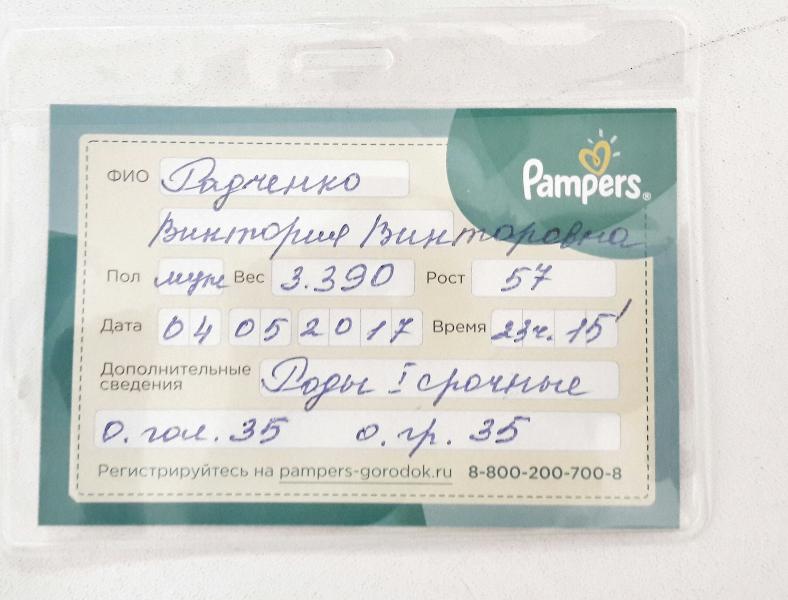 Pampers®
ФИО Радченко
Виктория Викторовна
Пол муж Вес 3.390 Рост 57
Дата 04 05 2017 Время 23ч. 15'
Дополнительные сведения Роды I срочные
о. гол. 35 о. гр. 35
Регистрируйтесь на pampers-gorodok.ru 8-800-200-700-8